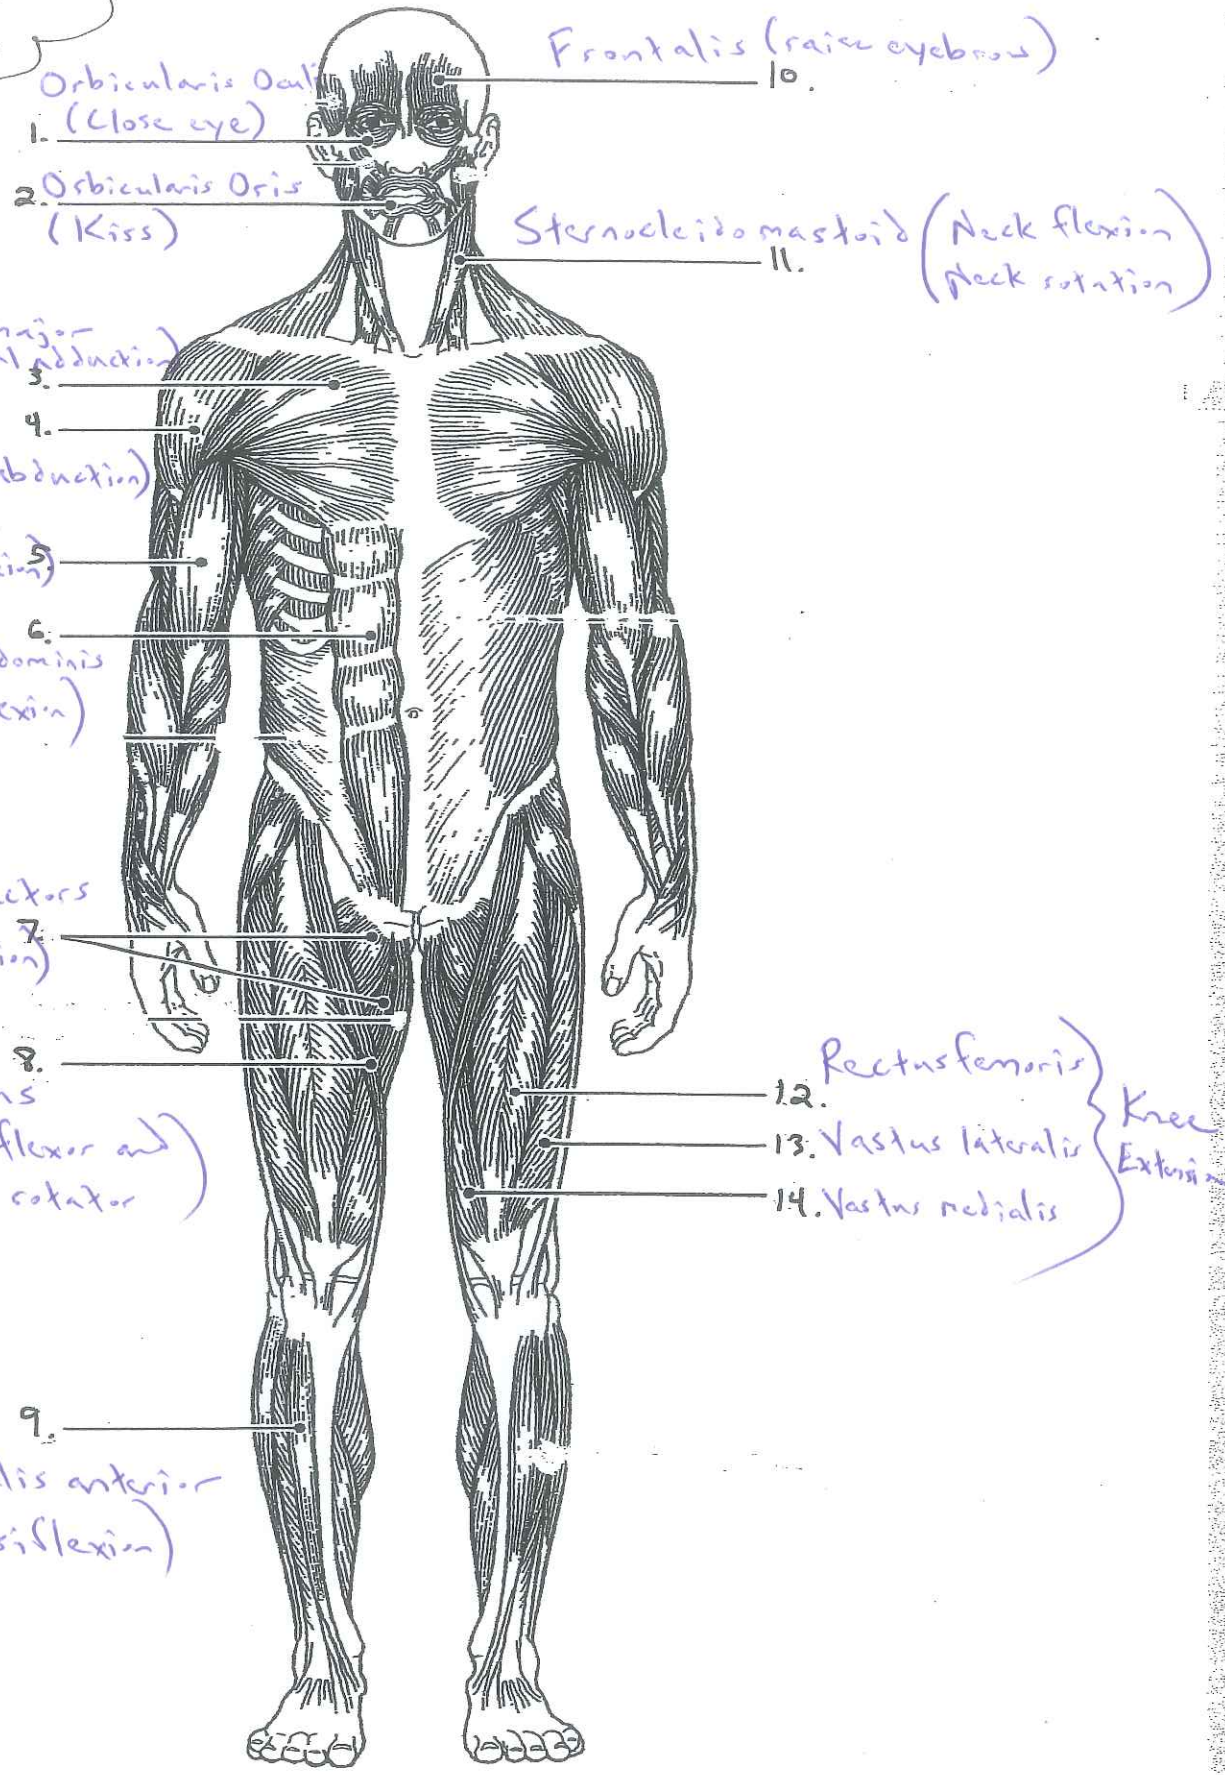 Orbicularis Oculi
(Close eye)
1.
2. Orbicularis Oris
(Kiss)
major
adduction)
3.
4.
abduction)
5.
6.
dominis
exion)
7.
8.
flexor and
rotator
9.
lis anterior
siflexion)
Frontalis (raise eyebrow)
10.
Sternocleidomastoid (Neck flexion
11. Neck rotation)
12. Rectus femoris
13. Vastus lateralis
14. Vastus medialis
Knee
Extension